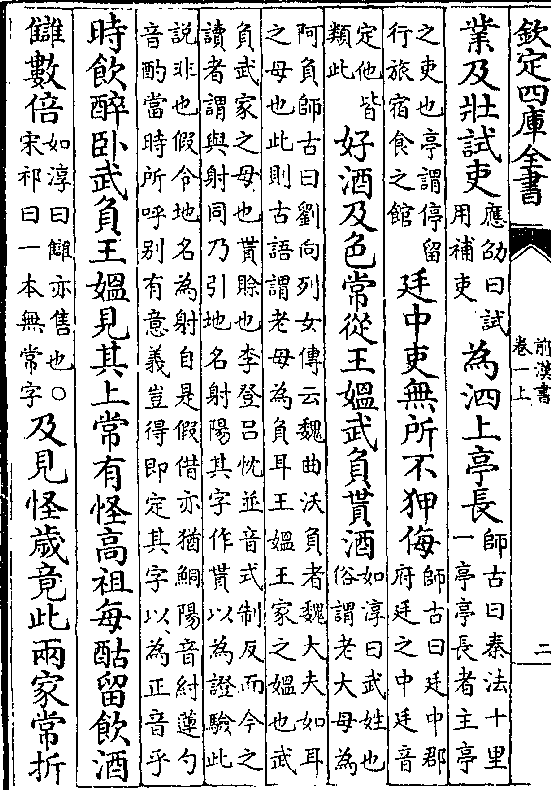 欽定四庫全書
前漢書
卷一上
二
業及壯試吏
應劭曰試
用補吏
為泗上亭長
師古曰秦法十里
一亭亭長者主亭
之吏也亭謂停留
行旅宿食之館
廷中吏無所不狎侮
師古曰廷中郡
府廷之中廷音
定他皆
類此
好酒及色常從王媼武負貰酒
如淳曰武姓也
俗謂老大母為
阿負師古曰劉向列女傳云魏曲沃負者魏大夫如耳
之母也此則古語謂老母為負耳王媼王家之媼也武
負武家之母也貰賒也李登吕忱並音式制反而今之
讀者謂與射同乃引地名射陽其字作貰以為證驗此
説非也假令地名為射自是假借亦猶鮦陽音紂蓮勺
音酌當時所呼别有意義豈得即定其字以為正音乎
時飲醉卧武負王媼見其上常有怪高祖每酤留飲酒
讎數倍
如淳曰讎亦售也○
宋祁曰一本無常字
及見怪歲竟此兩家常折